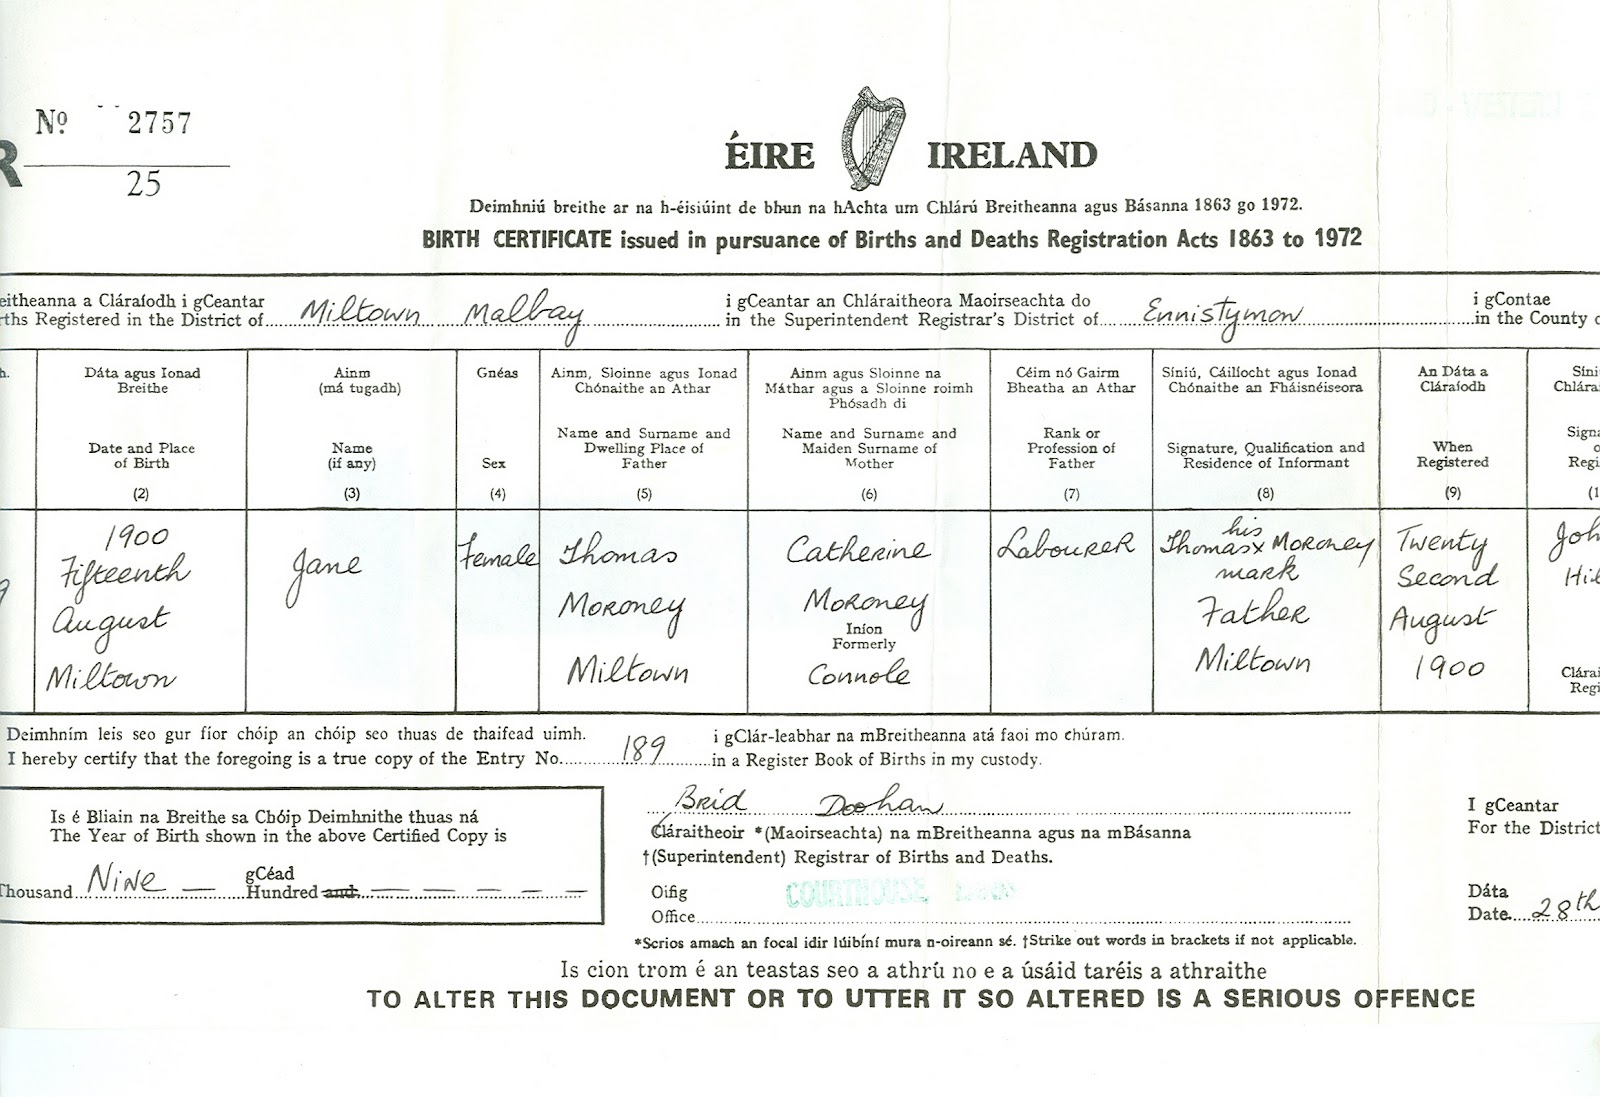 Nº 2757
R
25
ÉIRE IRELAND
Deimhniú breithe ar na h-éisiúint de bhun na hAchta um Chlárú Breitheanna agus Básanna 1863 go 1972.
BIRTH CERTIFICATE issued in pursuance of Births and Deaths Registration Acts 1863 to 1972
eitheanna a Cláraíodh i gCeantar
rths Registered in the District of Miltown Malbay
i gCeantar an Chláraitheora Maoirseachta do
in the Superintendent Registrar's District of Ennistymon
i gContae
in the County o
h.
Dáta agus Ionad
Breithe
Date and Place
of Birth
(2)
Ainm
(má tugadh)
Name
(if any)
(3)
Gnéas
Sex
(4)
Ainm, Sloinne agus Ionad
Chónaithe an Athar
Name and Surname and
Dwelling Place of
Father
(5)
Ainm agus Sloinne na
Máthar agus a Sloinne roimh
Phósadh di
Name and Surname and
Maiden Surname of
Mother
(6)
Céim nó Gairm
Bheatha an Athar
Rank or
Profession of
Father
(7)
Síniú, Cáilíocht agus Ionad
Chónaithe an Fháisnéiseora
Signature, Qualification and
Residence of Informant
(8)
An Dáta a
Cláraíodh
When
Registered
(9)
Síni
Chlára
Signa
o
Regi
(1
1900
Fifteenth
August
Miltown
Jane
Female
Thomas
Moroney
Miltown
Catherine
Moroney
Iníon
Formerly
Connole
Labourer
his
Thomas x Moroney
mark
Father
Miltown
Twenty
Second
August
1900
Joh
Hil
Clárai
Regi
Deimhním leis seo gur fíor chóip an chóip seo thuas de thaifead uimh.
I hereby certify that the foregoing is a true copy of the Entry No. 189
i gClár-leabhar na mBreitheanna atá faoi mo chúram.
in a Register Book of Births in my custody.
Is é Bliain na Breithe sa Chóip Deimhnithe thuas ná
The Year of Birth shown in the above Certified Copy is
gCéad
Thousand Nine Hundred and
Bríd Doohan
Cláraitheoir *(Maoirseachta) na mBreitheanna agus na mBásanna
†(Superintendent) Registrar of Births and Deaths.
Oifig
Office
COURTHOUSE,
I gCeantar
For the District
Dáta
Date 28th
*Scrios amach an focal idir lúibíní mura n-oireann sé. †Strike out words in brackets if not applicable.
Is cion trom é an teastas seo a athrú no e a úsáid taréis a athraithe
TO ALTER THIS DOCUMENT OR TO UTTER IT SO ALTERED IS A SERIOUS OFFENCE